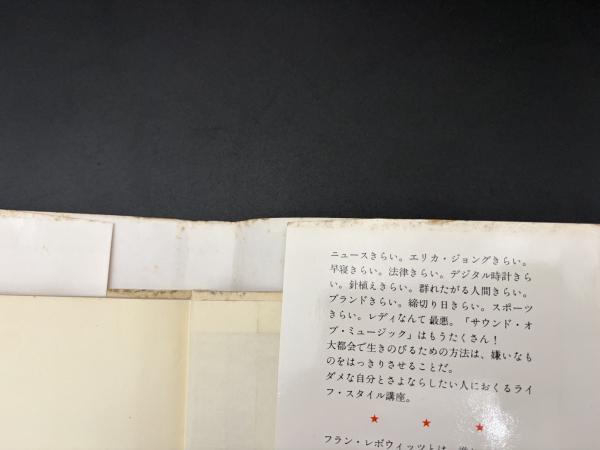 ニュースきらい。エリカ・ジョングきらい。
早寝きらい。法律きらい。デジタル時計きら
い。針植えきらい。群れたがる人間きらい。
ブランドきらい。締切り日きらい。スポーツ
きらい。レディなんて最悪。「サウンド・オ
ブ・ミュージック」はもうたくさん!
大都会で生きのびるための方法は、嫌いなも
のをはっきりさせることだ。
ダメな自分とさよならしたい人におくるライ
フ・スタイル講座。
★ ★ ★
フラン・レボウィッツとは、